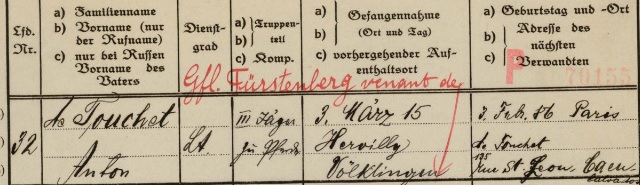 Lfd. Nr.
a) Familienname
b) Vorname (nur der Rufname)
c) nur bei Russen Vorname des Vaters
Dienstgrad
a) Truppenteil
b)
c) Komp.
a) Gefangennahme
b) (Ort und Tag)
c) vorhergehender Aufenthaltsort
a) Geburtstag und -Ort
b) Adresse des
c) nächsten Verwandten
P 70155
Gfl. Fürstenberg venant de
32
de Touchet
Anton
Lt
III Jäger
zu Pferde
3. März 15
Hervilly
Völklingen
3. Feb. 86 Paris
de Touchet
195 Rue St. Jean Caen
Calvados